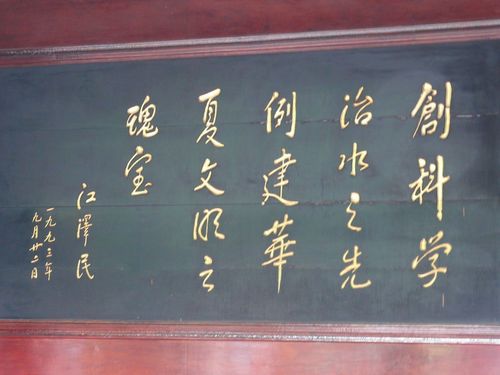 創科学
治水之先
例建華
夏文明之
瑰宝
江澤民
一九九三年
九月廿二日